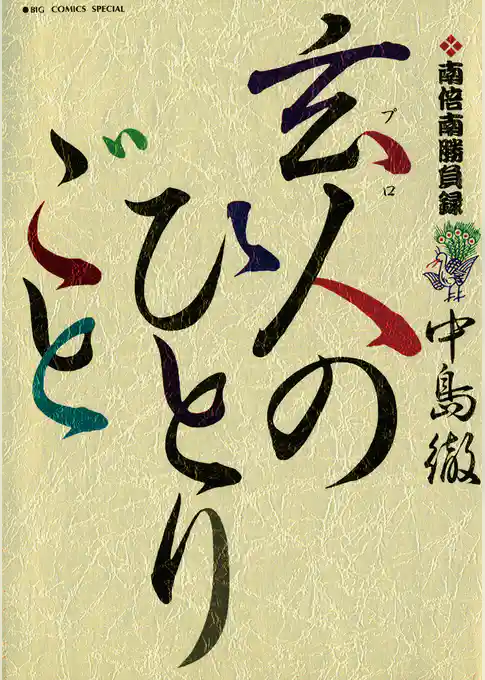 ●BIG COMICS SPECIAL
南倍南勝負録
中島徹
玄人の
プロ
ひとり
ごと